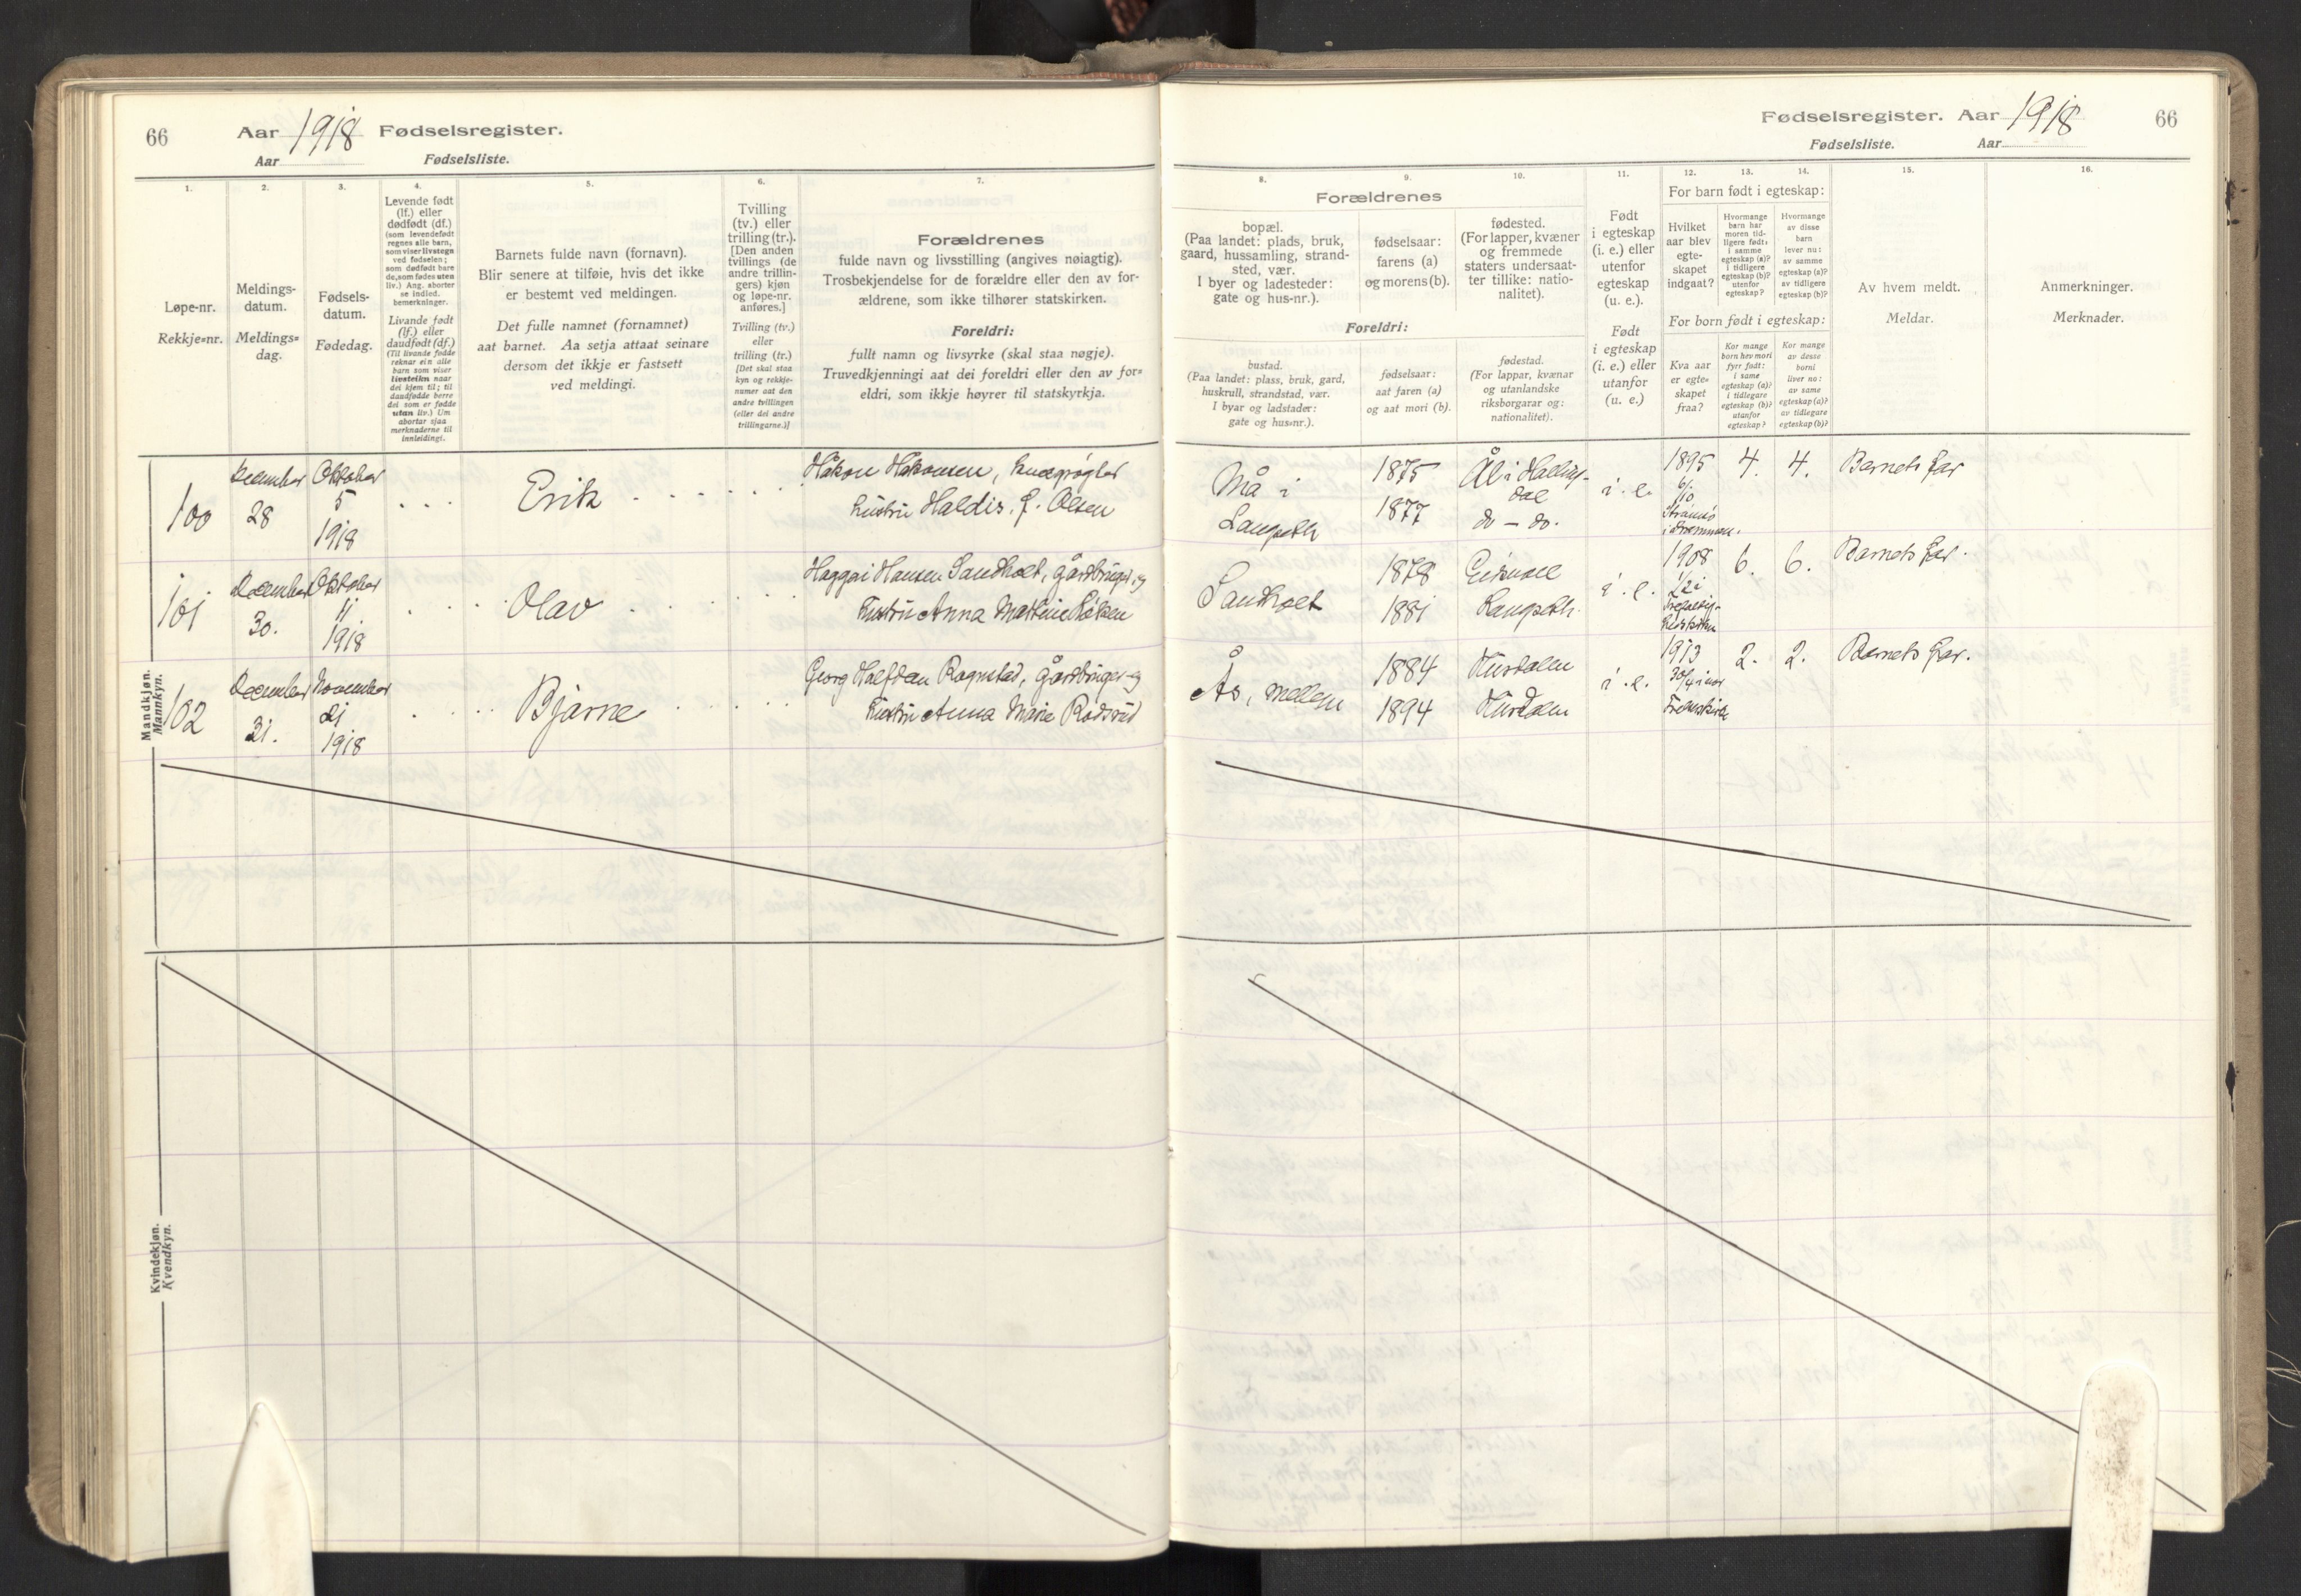 66
Aar 1918 Fødselsregister.
Aar Fødselsliste.
1.
2.
3.
4.
5.
6.
7.
Løpe-nr.
Rekkje=nr.
Meldings-
datum.
Meldings=
dag.
Fødsels-
datum.
Fødedag.
Levende født
(lf.) eller
dødfødt (df.)
(som levendefødt
regnes alle barn,
som viser livstegn
ved fødselen;
som dødfødt bare
de, som fødes uten
liv.) Ang. aborter
se indled.
bemerkninger.
Livande født
(lf.) eller
daudfødt (df.)
(Til livande fødde
reknar ein alle
barn som viser
livsteikn naar
dei kjem til; til
daudfødde berre
dei som er fødde
utan liv.) Um
abortar sjaa
merknaderne til
innleidingi.
Barnets fulde navn (fornavn).
Blir senere at tilføie, hvis det ikke
er bestemt ved meldingen.
Det fulle namnet (fornamnet)
aat barnet. Aa setja attaat seinare
dersom det ikkje er fastsett
ved meldingi.
Tvilling
(tv.) eller
trilling (tr.).
[Den anden
tvillings (de
andre trillin-
gers) kjøn
og løpe-nr.
anføres.]
Tvilling (tv.)
eller
trilling (tr.)
[Det skal staa
kyn og rekkje-
numer aat den
andre tvillingen
(eller dei andre
trillingarne.)]
Forældrenes
fulde navn og livsstilling (angives nøiagtig).
Trosbekjendelse for de forældre eller den av for-
ældrene, som ikke tilhører statskirken.
Foreldri:
fullt namn og livsyrke (skal staa nøgje).
Truvedkjenningi aat dei foreldri eller den av for=
eldri, som ikkje høyrer til statskyrkja.
Mandkjøn.
Mannkyn.
100
December
28
Oktober
5
1918
Erik
Håkon Håkonsen,
hustru Haldis, f. Olsen
101
December
30.
Oktober
11
1918
Olav
Haggai Hansen Sandholt, gårdbruger og
hustru Anna Martine
102
December
31.
November
21
1918
Bjarne
Georg Halfdan Rognstad, gårdbruger og
hustru Anna Marie Rødsrud
Kvindekjøn.
Kvendkyn.
Fødselsregister. Aar 1918
66
Fødselsliste. Aar
8.
9.
10.
11.
12.
13.
14.
15.
16.
Forældrenes
bopæl.
(Paa landet: plads, bruk,
gaard, hussamling, strand-
sted, vær.
I byer og ladesteder:
gate og hus-nr.).
fødselsaar:
farens (a)
og morens (b).
fødested.
(For lapper, kvæner
og fremmede
staters undersaat-
ter tillike: natio-
nalitet).
Foreldri:
bustad.
(Paa landet: plass, bruk, gard,
huskrull, strandstad, vær.
I byar og ladstader:
gate og hus=nr.).
fødselsaar:
aat faren (a)
og aat mori (b).
fødestad.
(For lappar, kvænar
og utanlandske
riksborgarar og:
nationalitet).
Født
i egteskap
(i. e.) eller
utenfor
egteskap
(u. e.).
Født
i egteskap
(i. e.) eller
utanfor
(u. e.)
For barn født i egteskap:
Hvilket
aar blev
egte-
skapet
indgaat?
Hvormange
barn har
moren tid-
ligere født:
i samme
egteskap (a)?
i tidligere
egteskap (b)?
utenfor
egteskap?
Hvormange
av disse
barn
lever nu:
av samme
egteskap (a)?
av tidligere
egteskap (b)?
For born født i egteskap:
Kva aar
er egte=
skapet
fraa?
Kor mange
born hev mori
fyrr født:
i same
egteskap (a)?
i tidlegare
egteskap (b)?
utanfor
egteskap?
Kor mange
av desse
borni
liver no:
av same
egteskap (a)?
av tidlegare
egteskap (b)?
Av hvem meldt.
Meldar.
Anmerkninger.
Merknader.
Må i
1875
1877
Ål i Halling-
dal
do - do.
i. e.
1895
6/10
Strømsø
i Drammen.
4.
4.
Barnets far
Sandholt
1878
1881
i. e.
1908
6.
6.
Barnets far.
Ås, mellem
1884
1894
i. e.
1913
2.
2.
Barnets far.